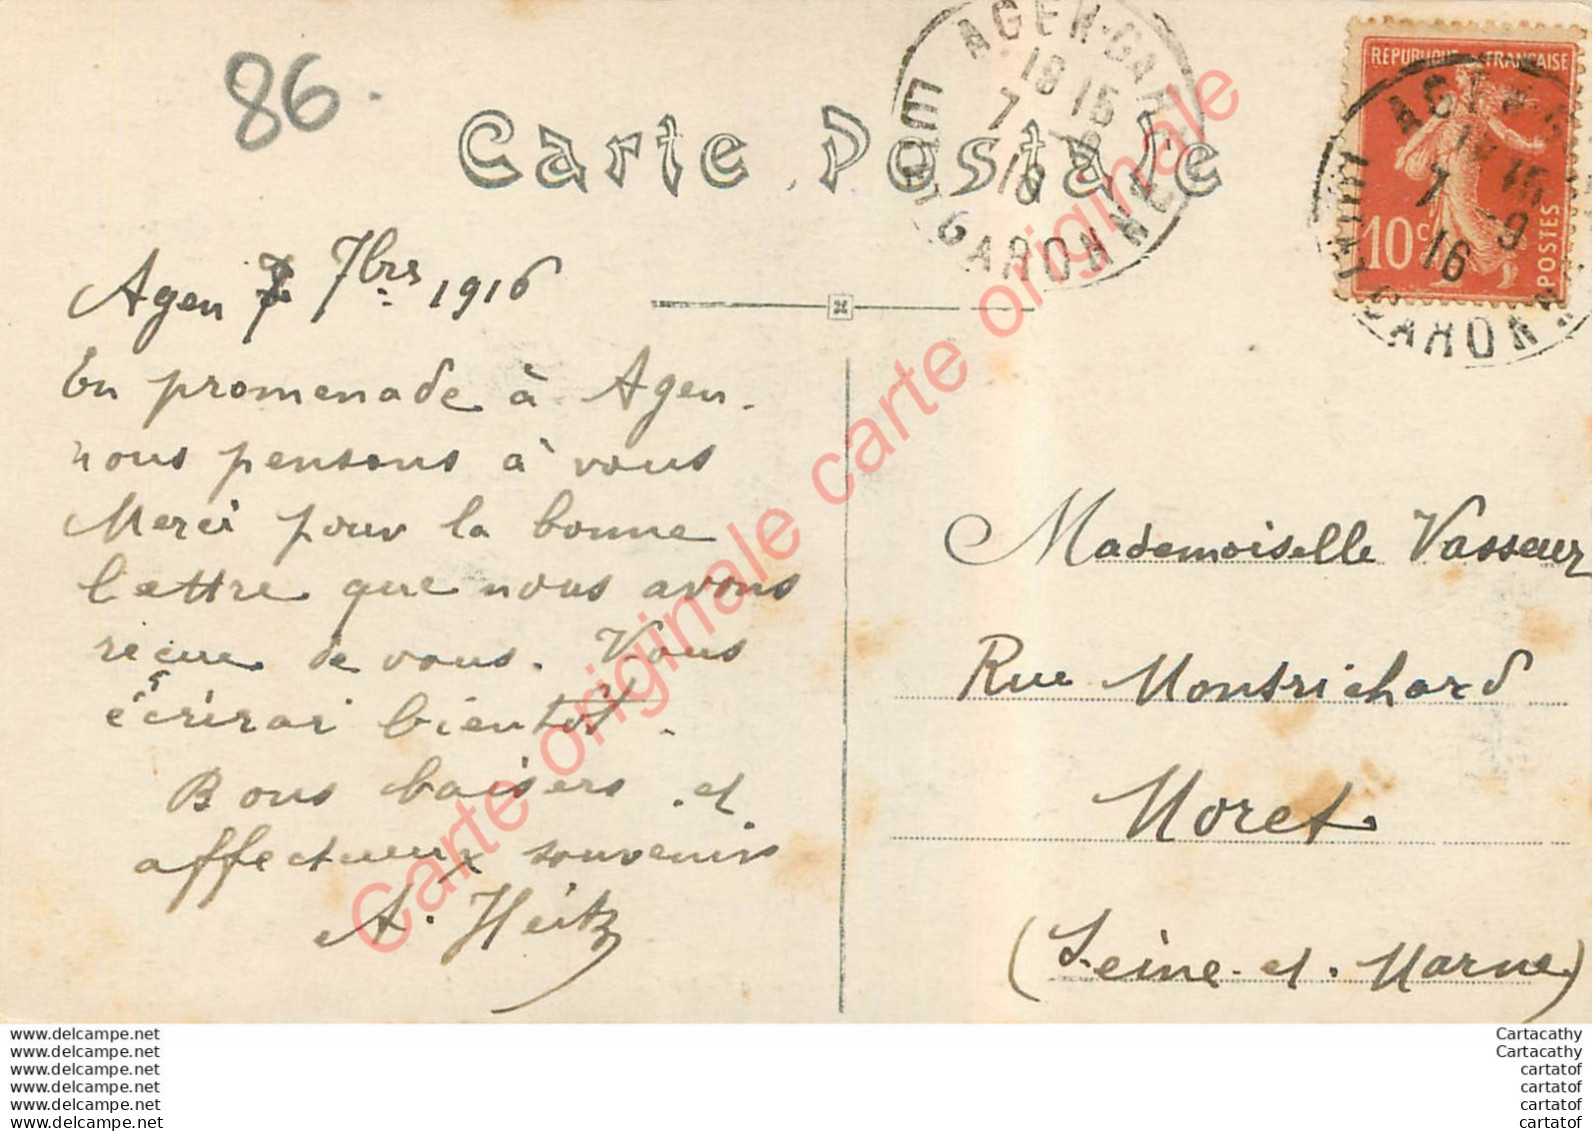 86.
Carte Postale
AGEN-GARE
18 15
7 - 9
16
LOT-ET-GARONNE
RÉPUBLIQUE FRANÇAISE
10c
POSTES
AGEN-G
18 15
7 - 9
16
GARONN
Agen 7 7bre 1916
En promenade à Agen.
nous pensons à vous
Merci pour la bonne
lettre que nous avons
reçue de vous. Vous
écrirai bientôt.
Bons baisers et
affectueux souvenirs
A. Heitz
Mademoiselle Vasseur
Rue Montrichard
Moret
(Seine-et-Marne)
Carte originale carte originale
Carte originale carte originale
www.delcampe.net
www.delcampe.net
www.delcampe.net
www.delcampe.net
www.delcampe.net
www.delcampe.net
Cartacathy
Cartacathy
cartatof
cartatof
cartatof
cartatof